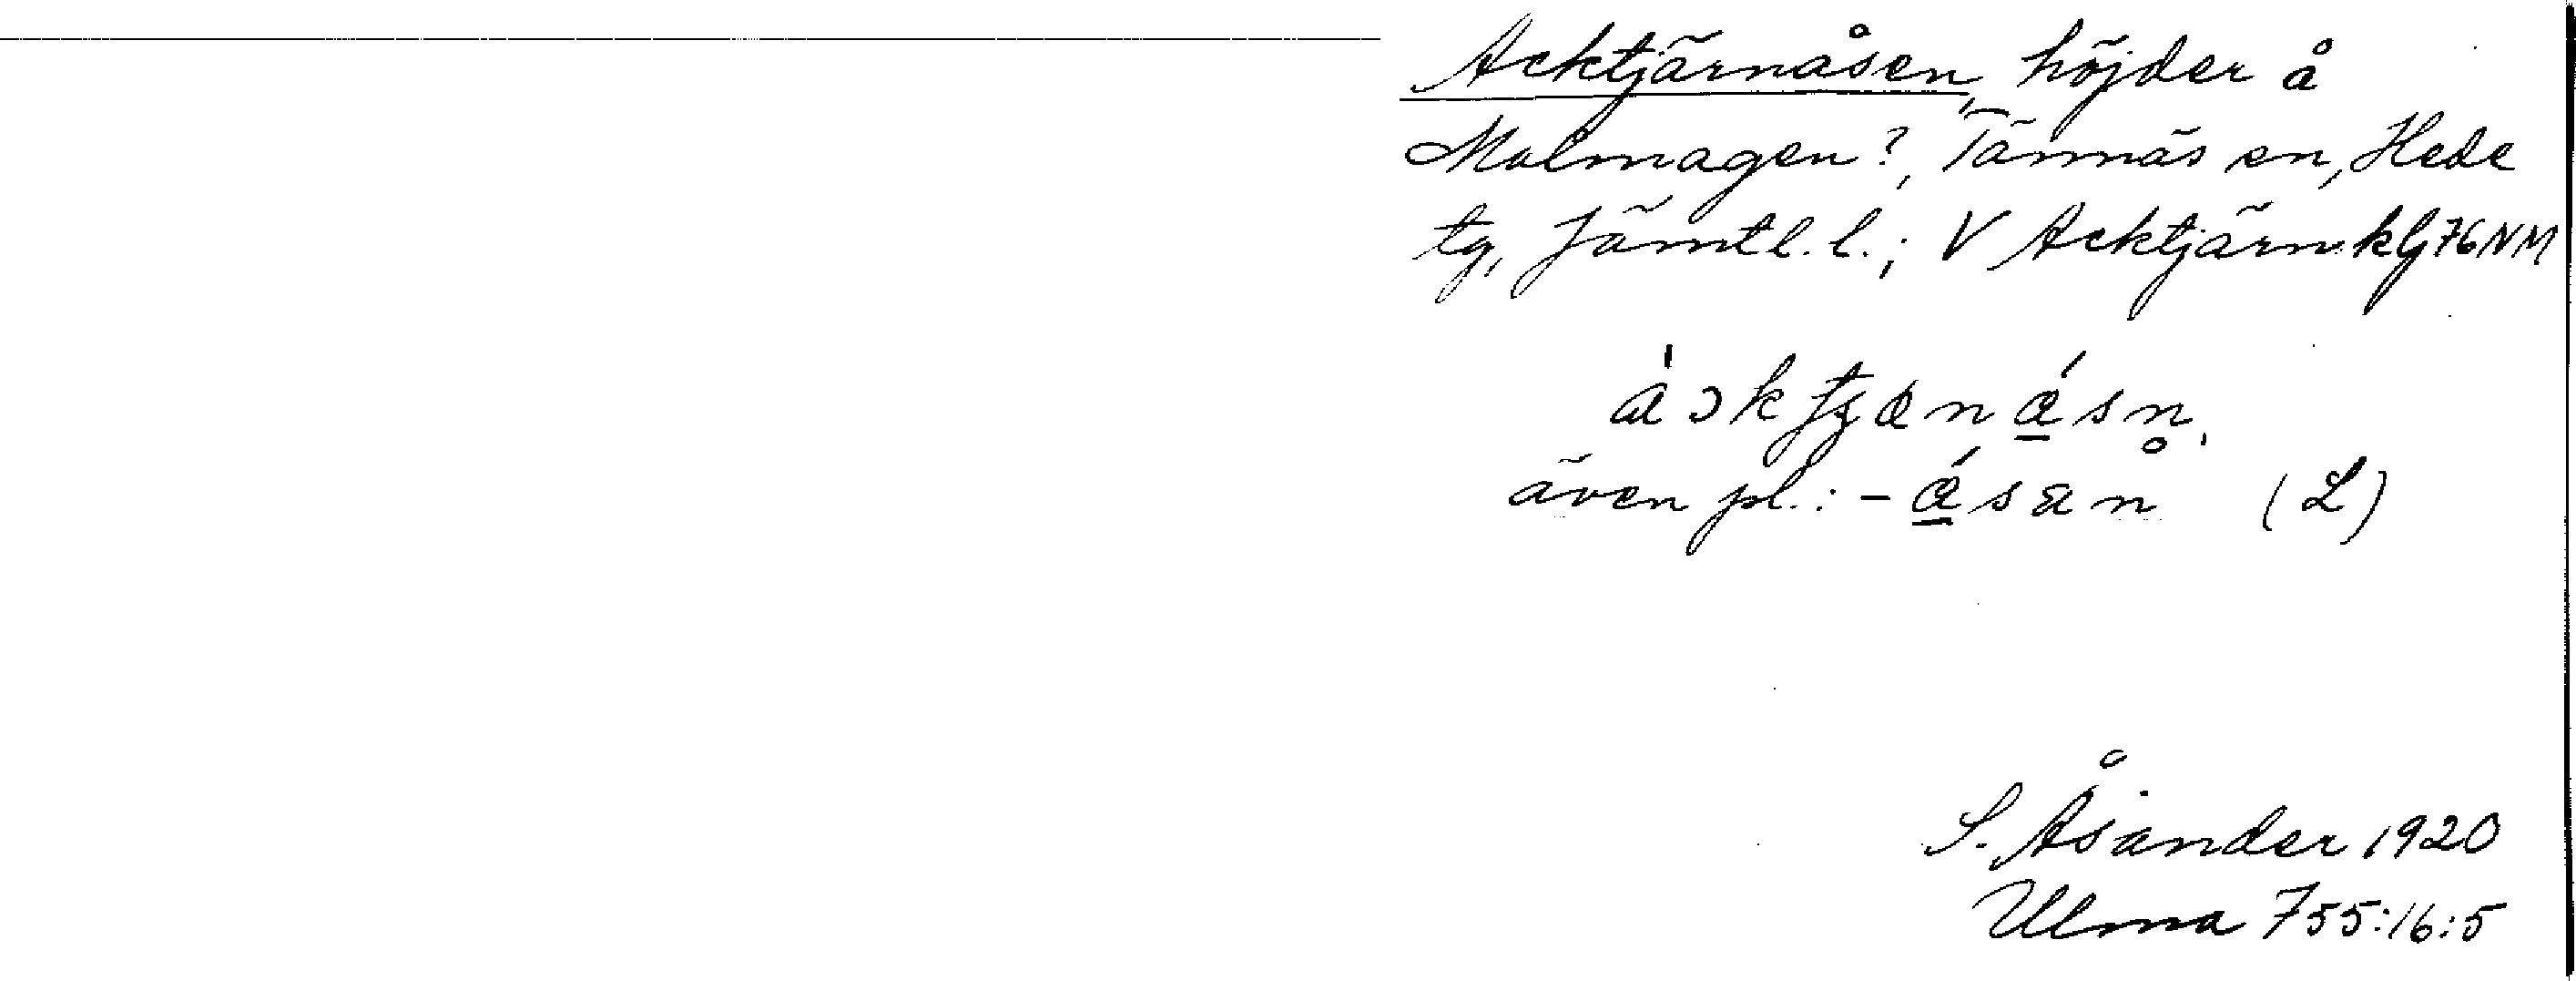 Acktjärnåsen, höjder å
Malmagen?, Tännäs sn, Hede
tg, Jämtl. l.; V Acktjärn. kbl 76 NM
även pl.: - (L)
S. Åsander 1920
Ulma 755:16:5